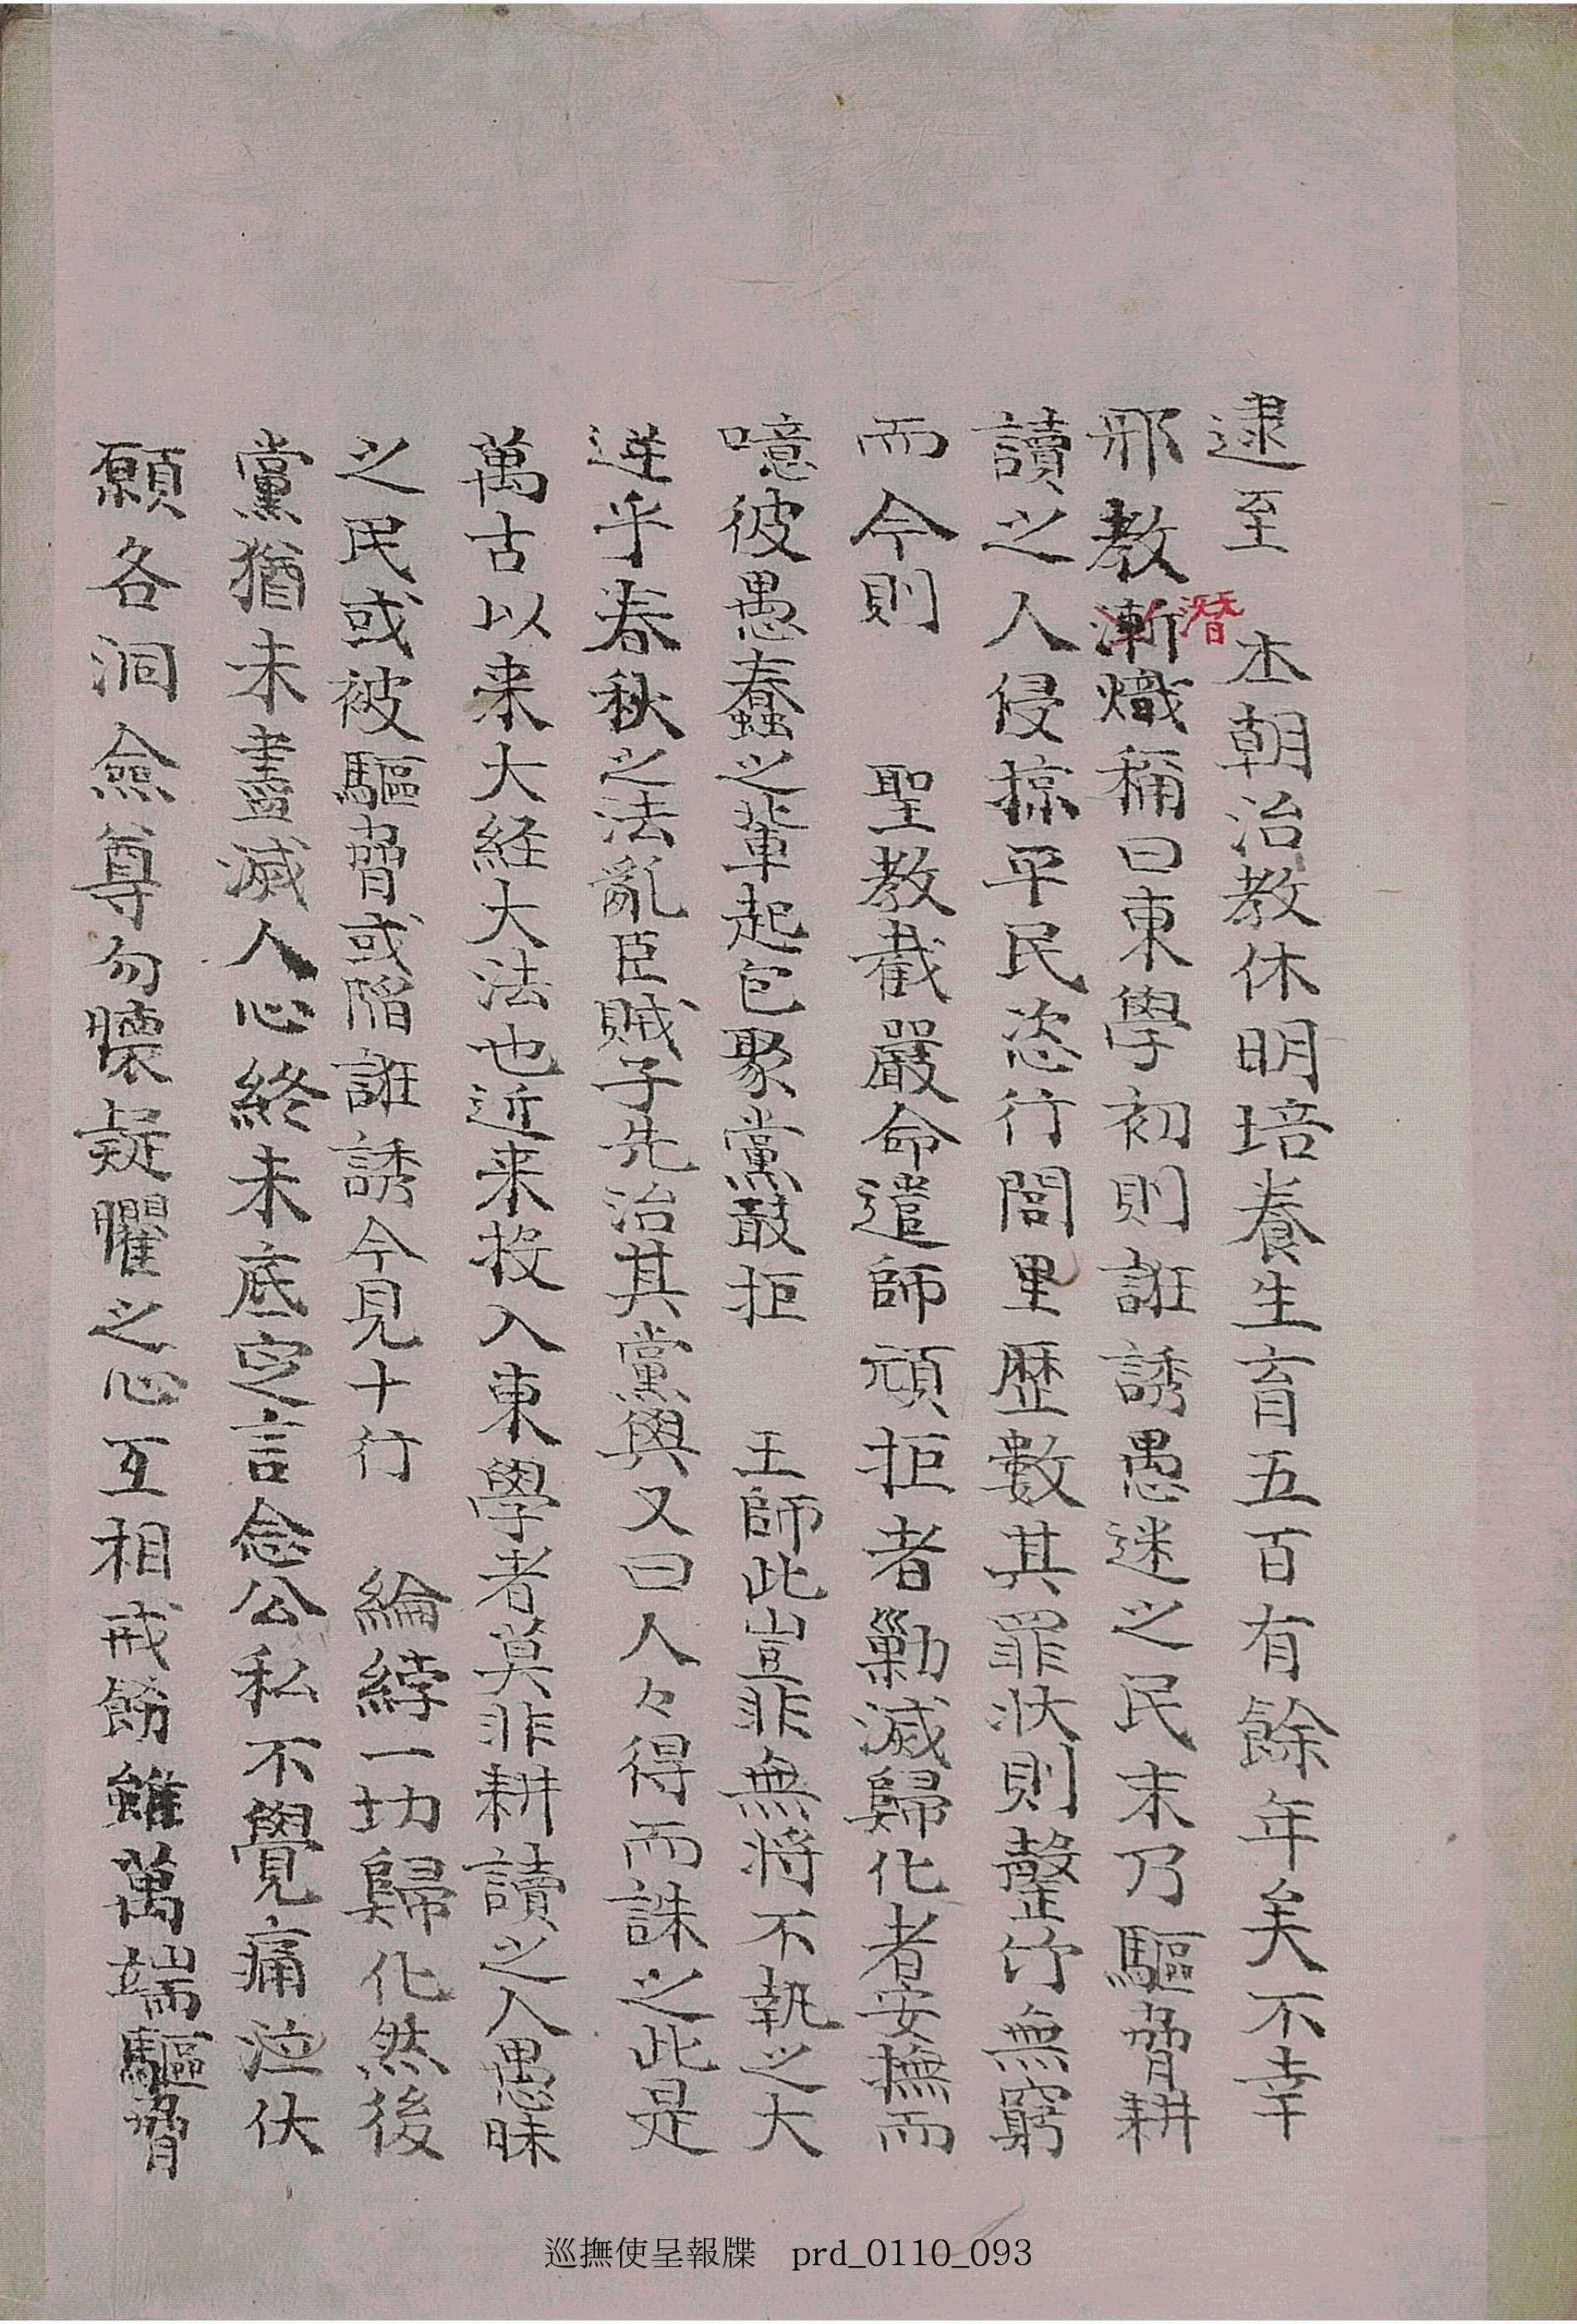 逮至　本朝治教休明培養生育五百有餘年矣不幸
邪教漸熾稱曰東學初則誑誘愚迷之民末乃驅脅耕
潛
讀之人侵掠平民恣行閭里歷數其罪狀則罄竹無窮
而今則　聖教截嚴命遣師頑拒者勦滅歸化者安撫而
噫彼愚蠢之輩起包聚黨敢拒　王師此豈非無將不執之大
逆乎春秋之法亂臣賊子先治其黨與又曰人々得而誅之此是
萬古以来大経大法也近来投入東學者莫非耕讀之人愚昧
之民或被驅脅或陷誑誘今見十行　綸綍一切歸化然後
黨猶未盡滅人心終未底定言念公私不覺痛泣伏
願各洞僉尊勿懷疑懼之心互相戒飭雖萬端驅脅
巡撫使呈報牒　prd_0110_093